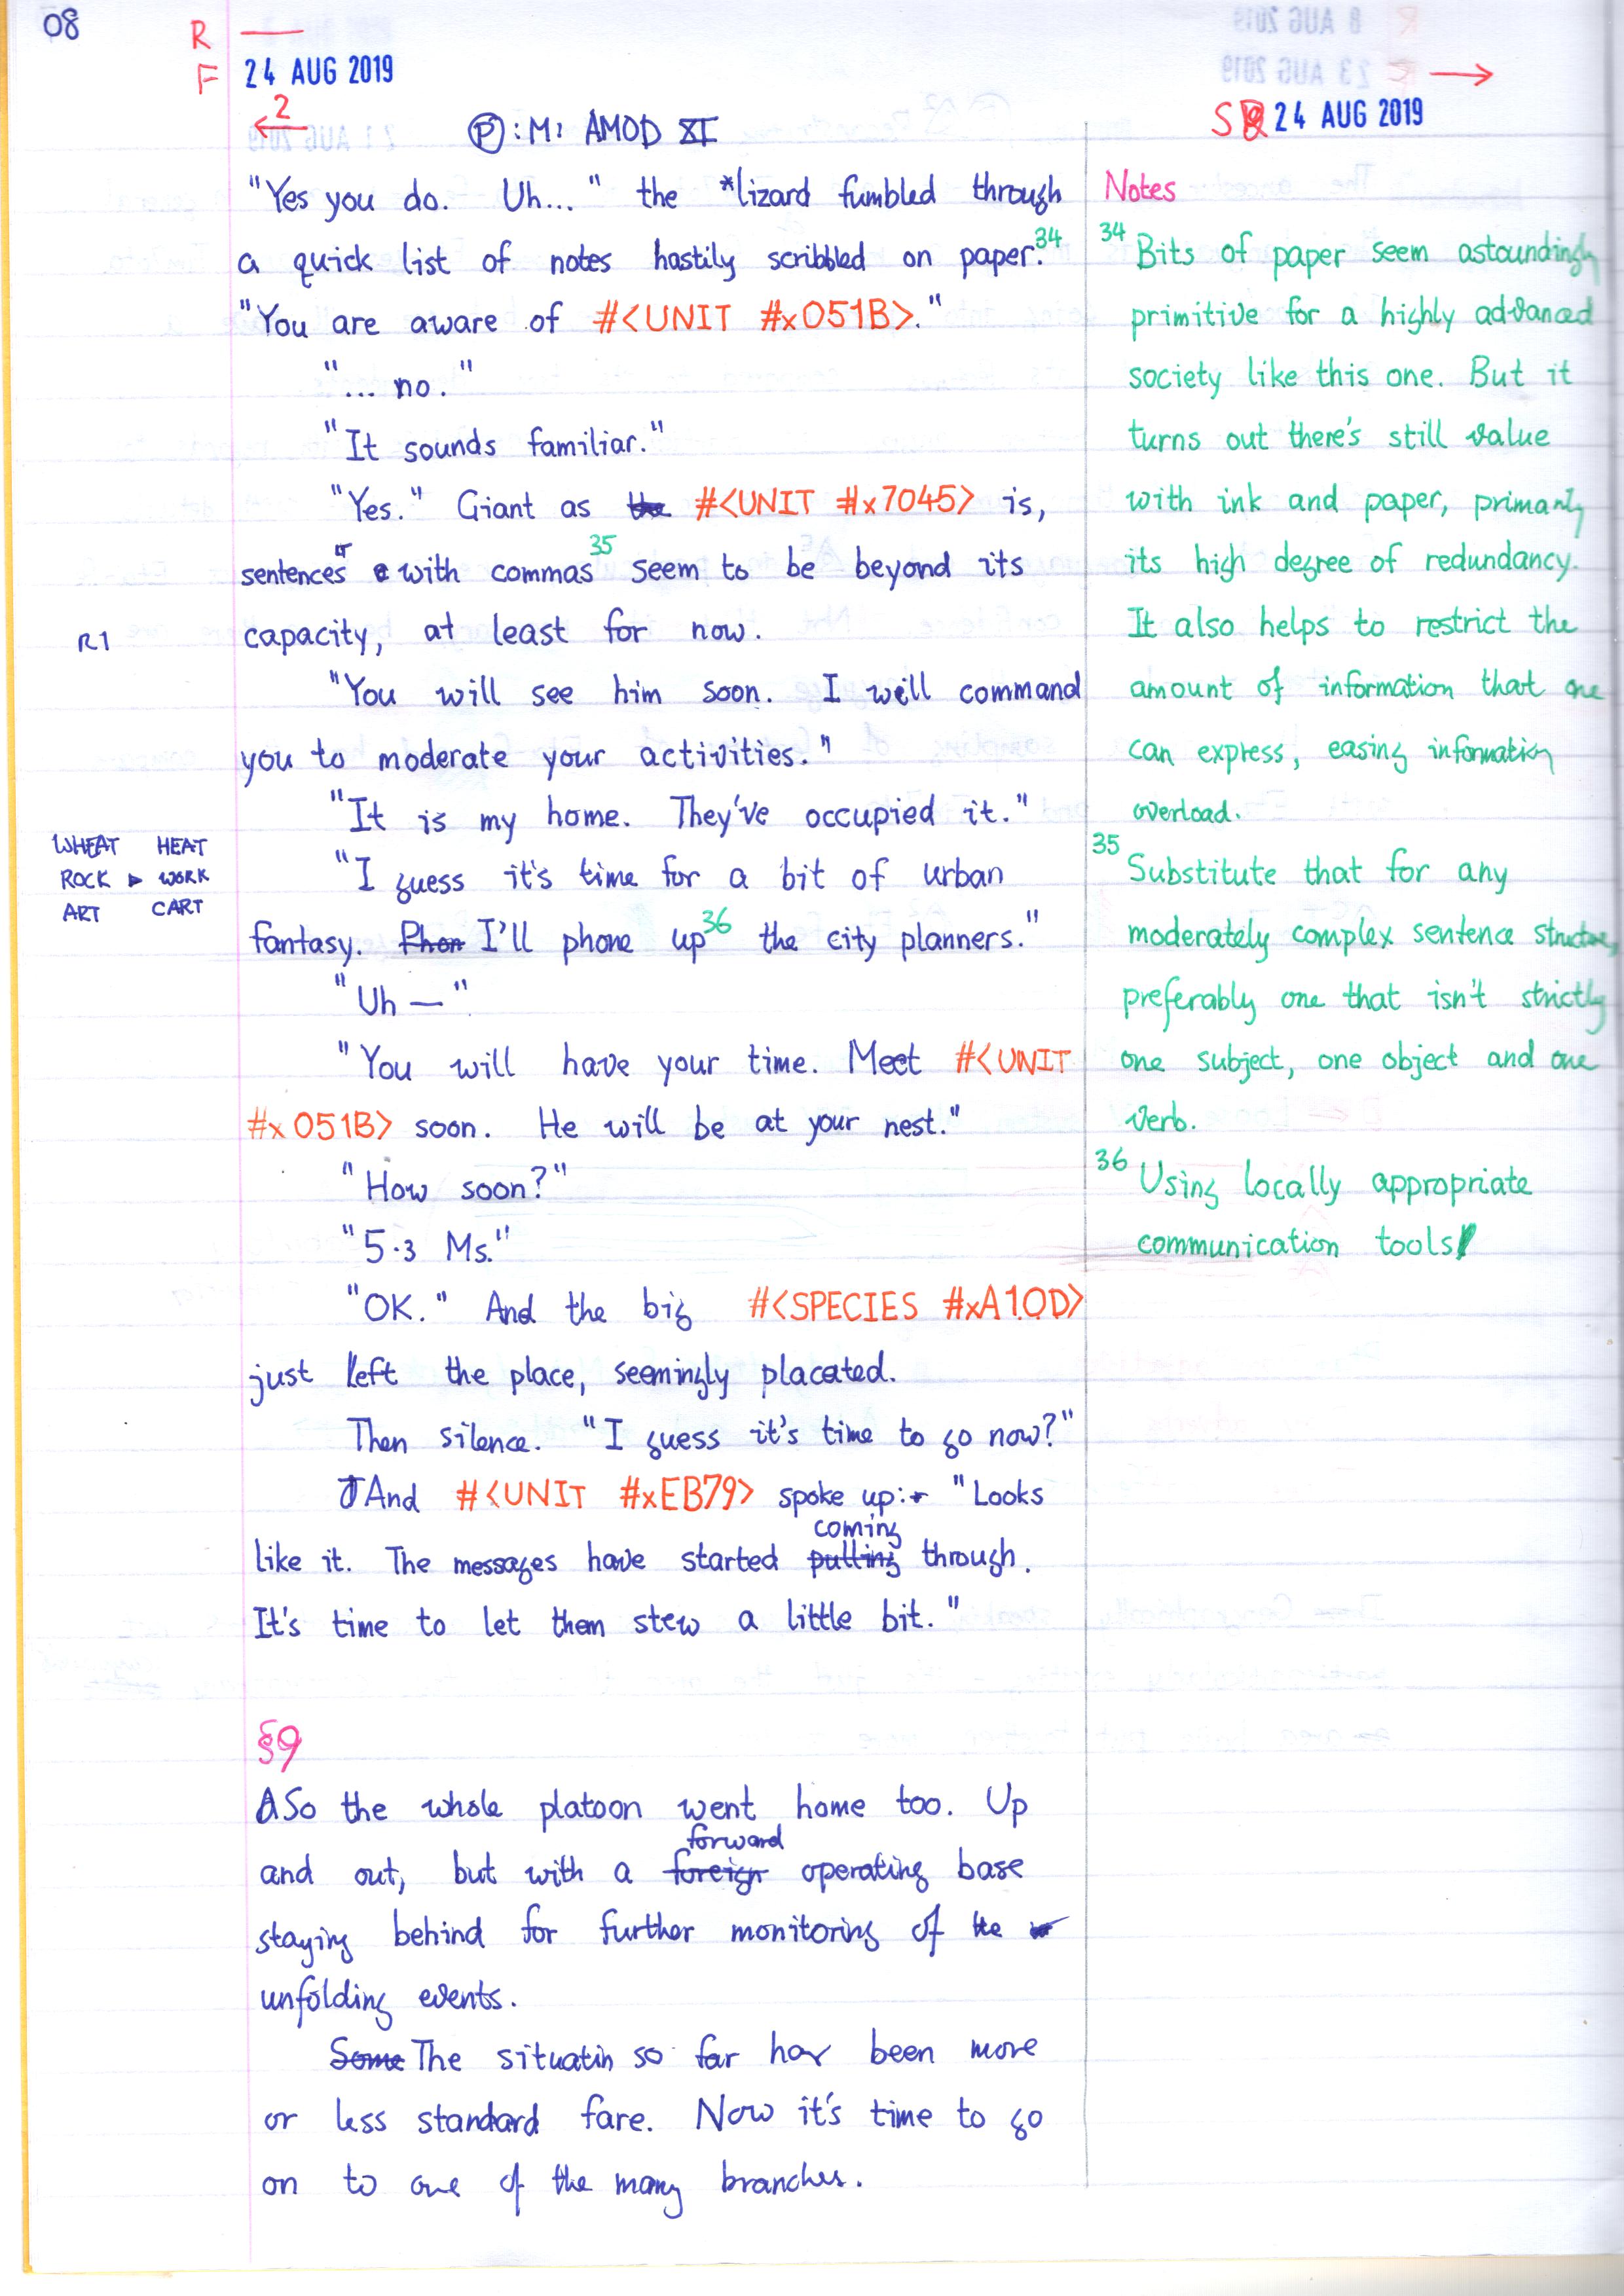 08
R —
F 24 AUG 2019
2
Ⓟ:M: AMOD XI
SR 24 AUG 2019
"Yes you do. Uh..." the *lizard fumbled through
a quick list of notes hastily scribbled on paper.34
"You are aware of #<UNIT #x051B>."
"... no."
"It sounds familiar."
"Yes." Giant as the #<UNIT #x7045> is,
sentences with commas35 seem to be beyond its
R1
capacity, at least for now.
"You will see him soon. I will command
you to moderate your activities."
"It is my home. They've occupied it."
WHEAT HEAT
ROCK ▸ WORK
ART CART
"I guess it's time for a bit of urban
fantasy. Phon I'll phone up36 the city planners."
"Uh —"
"You will have your time. Meet #<UNIT
#x051B> soon. He will be at your nest."
"How soon?"
"5.3 Ms."
"OK." And the big #<SPECIES #xA10D>
just left the place, seemingly placated.
Then silence. "I guess it's time to go now?"
And #<UNIT #xEB79> spoke up: "Looks
coming
like it. The messages have started putting through.
It's time to let them stew a little bit."
§9
So the whole platoon went home too. Up
forward
and out, but with a foreign operating base
staying behind for further monitoring of the
unfolding events.
Some The situatin so far has been more
or less standard fare. Now it's time to go
on to one of the many branches.
Notes
34 Bits of paper seem astoundingly
primitive for a highly advanced
society like this one. But it
turns out there's still value
with ink and paper, primarily
its high degree of redundancy.
It also helps to restrict the
amount of information that one
can express, easing information
overload.
35 Substitute that for any
moderately complex sentence structure,
preferably one that isn't strictly
one subject, one object and one
verb.
36 Using locally appropriate
communication tools